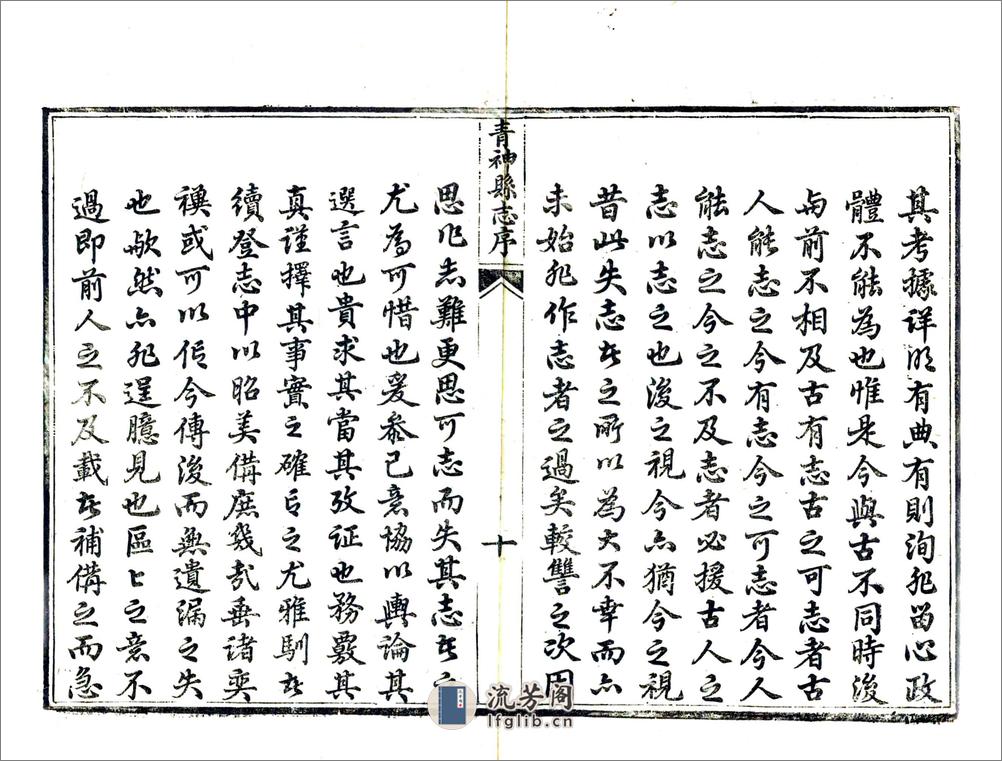 其考據詳明有典有則洵非留心政
體不能為也惟是今與古不同時後
与前不相及古有志古之可志者古
人能志之今有志今之可志者今人
能志之今之不及志者必援古人之
志以志之也後之視今亦猶今之視
昔此失志者之所以為大不幸而亦
未始非作志者之過矣較讐之次因
青神縣志序
十
思作志難更思可志而失其志者之
尤為可惜也爰叅己意協以輿論其
選言也貴求其當其攷証也務覈其
真謹擇其事實之確言之尤雅馴者
續登志中以昭美備庶幾哉垂諸奕
禩或可以信今傳後而無遺漏之失
也歟然亦非逞臆見也區〻之意不
過即前人之不及載者補備之而急
流芳阁
lfglib.cn